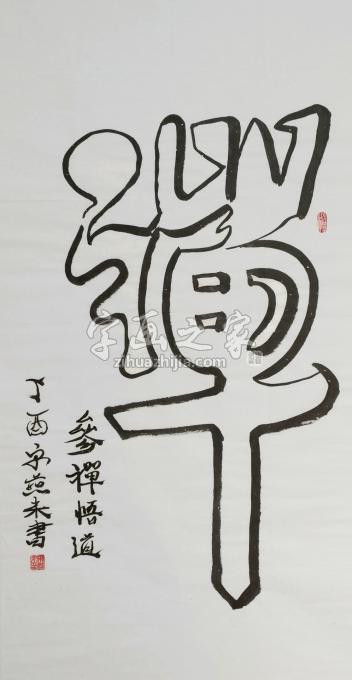 禪
參禪悟道
丁酉
燕未書
字画之家
zihuazhijia.com